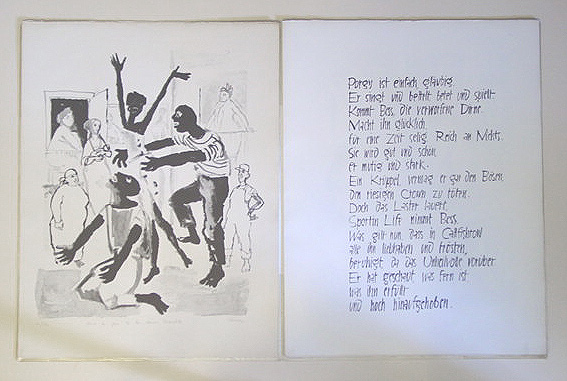 Porgy ist einfach, gläubig.
Er singt und bettelt, betet und spielt.
Kommt Bess, die verworfene Dirne.
Macht ihn glücklich,
für eine Zeit selig. Reich an Nichts.
Sie wird gut und schön,
er mutig und stark.
Ein Krüppel, vermag er gar den Bösen,
Den riesigen Crown zu töten.
Doch das Laster lauert.
Sportin Life nimmt Bess.
Was gilt nun, dass in Catfishrow
alle ihn liebhaben und trösten,
beruhigt, da das Unheilvolle vorüber.
Er hat geschaut, was fern ist
was ihn erfüllt
und hoch hinaufgehoben.